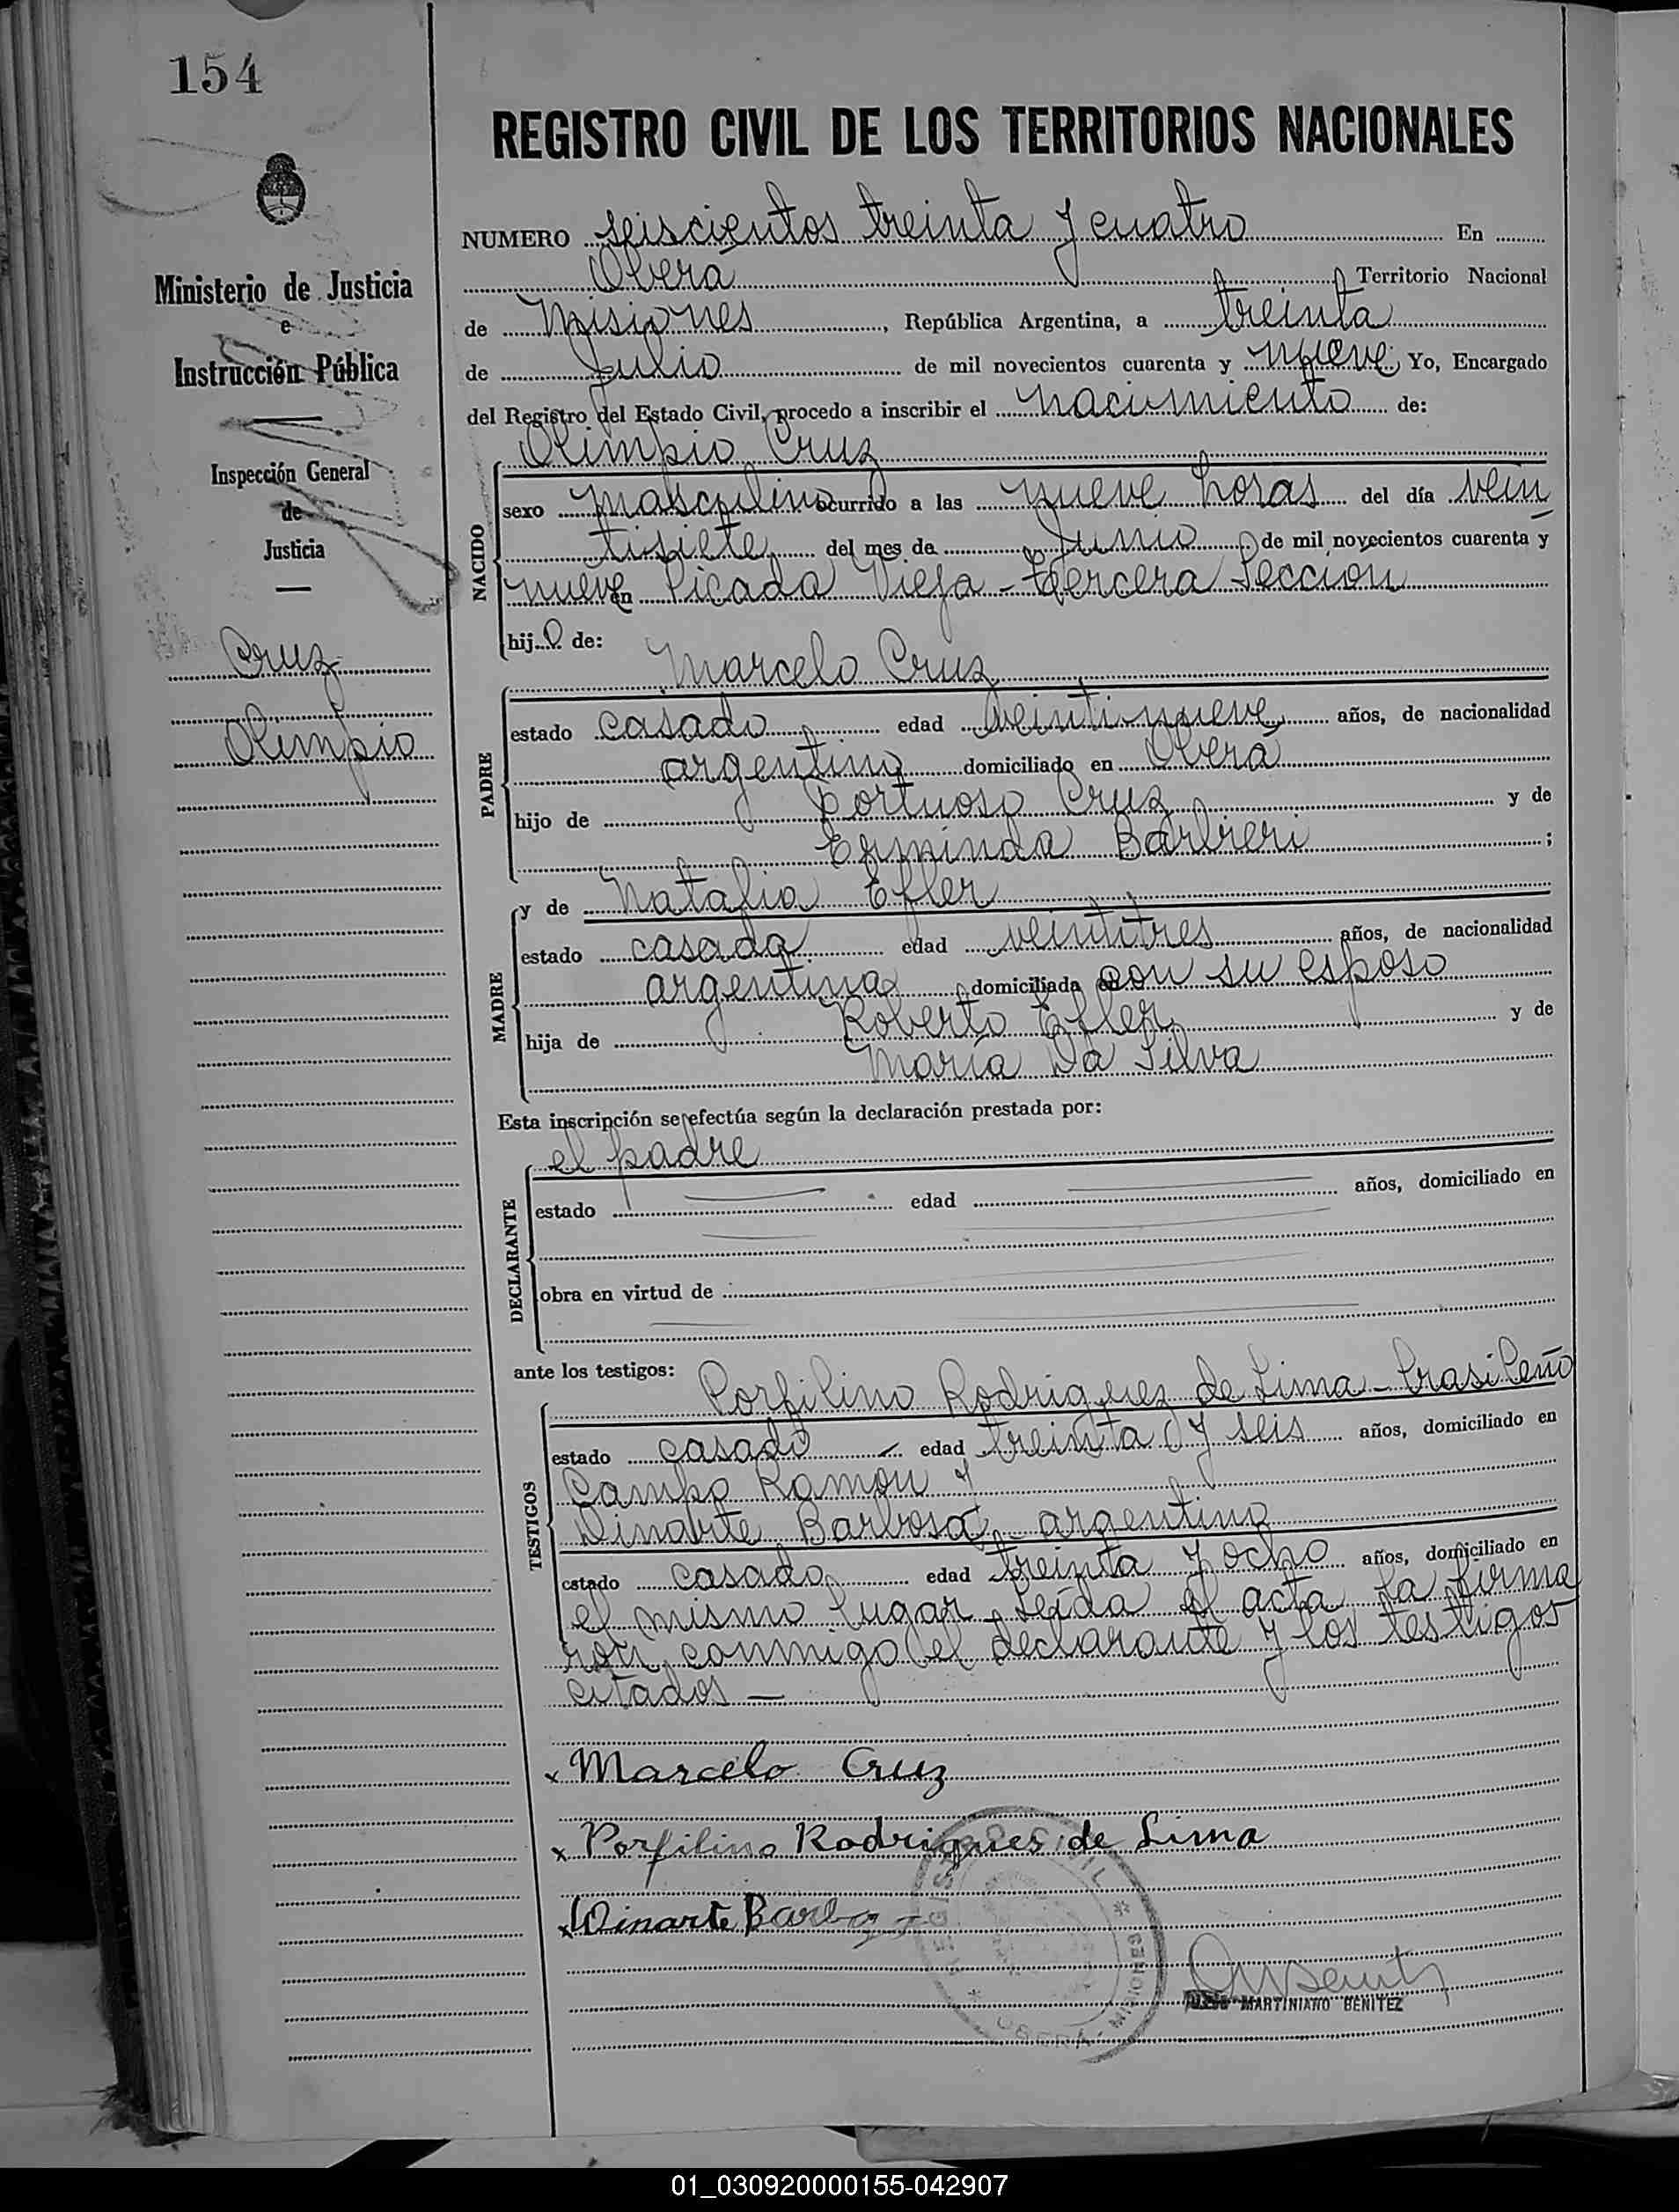 154
REGISTRO CIVIL DE LOS TERRITORIOS NACIONALES
NUMERO seiscientos treinta y cuatro En
Oberá Territorio Nacional
de Misiones, República Argentina, a treinta
de Julio de mil novecientos cuarenta y nueve Yo, Encargado
del Registro del Estado Civil, procedo a inscribir el nacimiento de:
Olimpio Cruz
NACIDO
sexo masculino ocurrido a las nueve horas del día vein
tisiete del mes de Junio de mil novecientos cuarenta y
nueve en Picada Vieja - tercera Seccion
hijo de:
Marcelo Cruz
PADRE
estado casado edad veintinueve años, de nacionalidad
argentino domiciliado en Oberá
hijo de Cruz y de
Erminda Barbieri ;
MADRE
y de Natalia Efler
estado casada edad veintitres años, de nacionalidad
argentina domiciliada con su esposo
hija de Roberto Efler y de
María Da Silva
Esta inscripción se efectúa según la declaración prestada por:
el padre
DECLARANTE
estado edad años, domiciliado en
obra en virtud de
ante los testigos:
Porfilino Rodriguez de Lima - brasileño
TESTIGOS
estado casado edad treinta y seis años, domiciliado en
Campo Ramon y
Dinarte Barbosa, argentino
estado casado edad treinta y ocho años, domiciliado en
el mismo lugar, Leída el acta la firma
ron conmigo el declarante y los testigos
citados -
x Marcelo Cruz
x Porfilino Rodrigues de Lima
x Dinarte Barbosa
REGISTRO CIVIL
OBERA - MISIONES
MARTINIANO BENITEZ
Ministerio de Justicia
e
Instrucción Pública
Inspección General
de
Justicia
Cruz
Olimpio
01_030920000155-042907